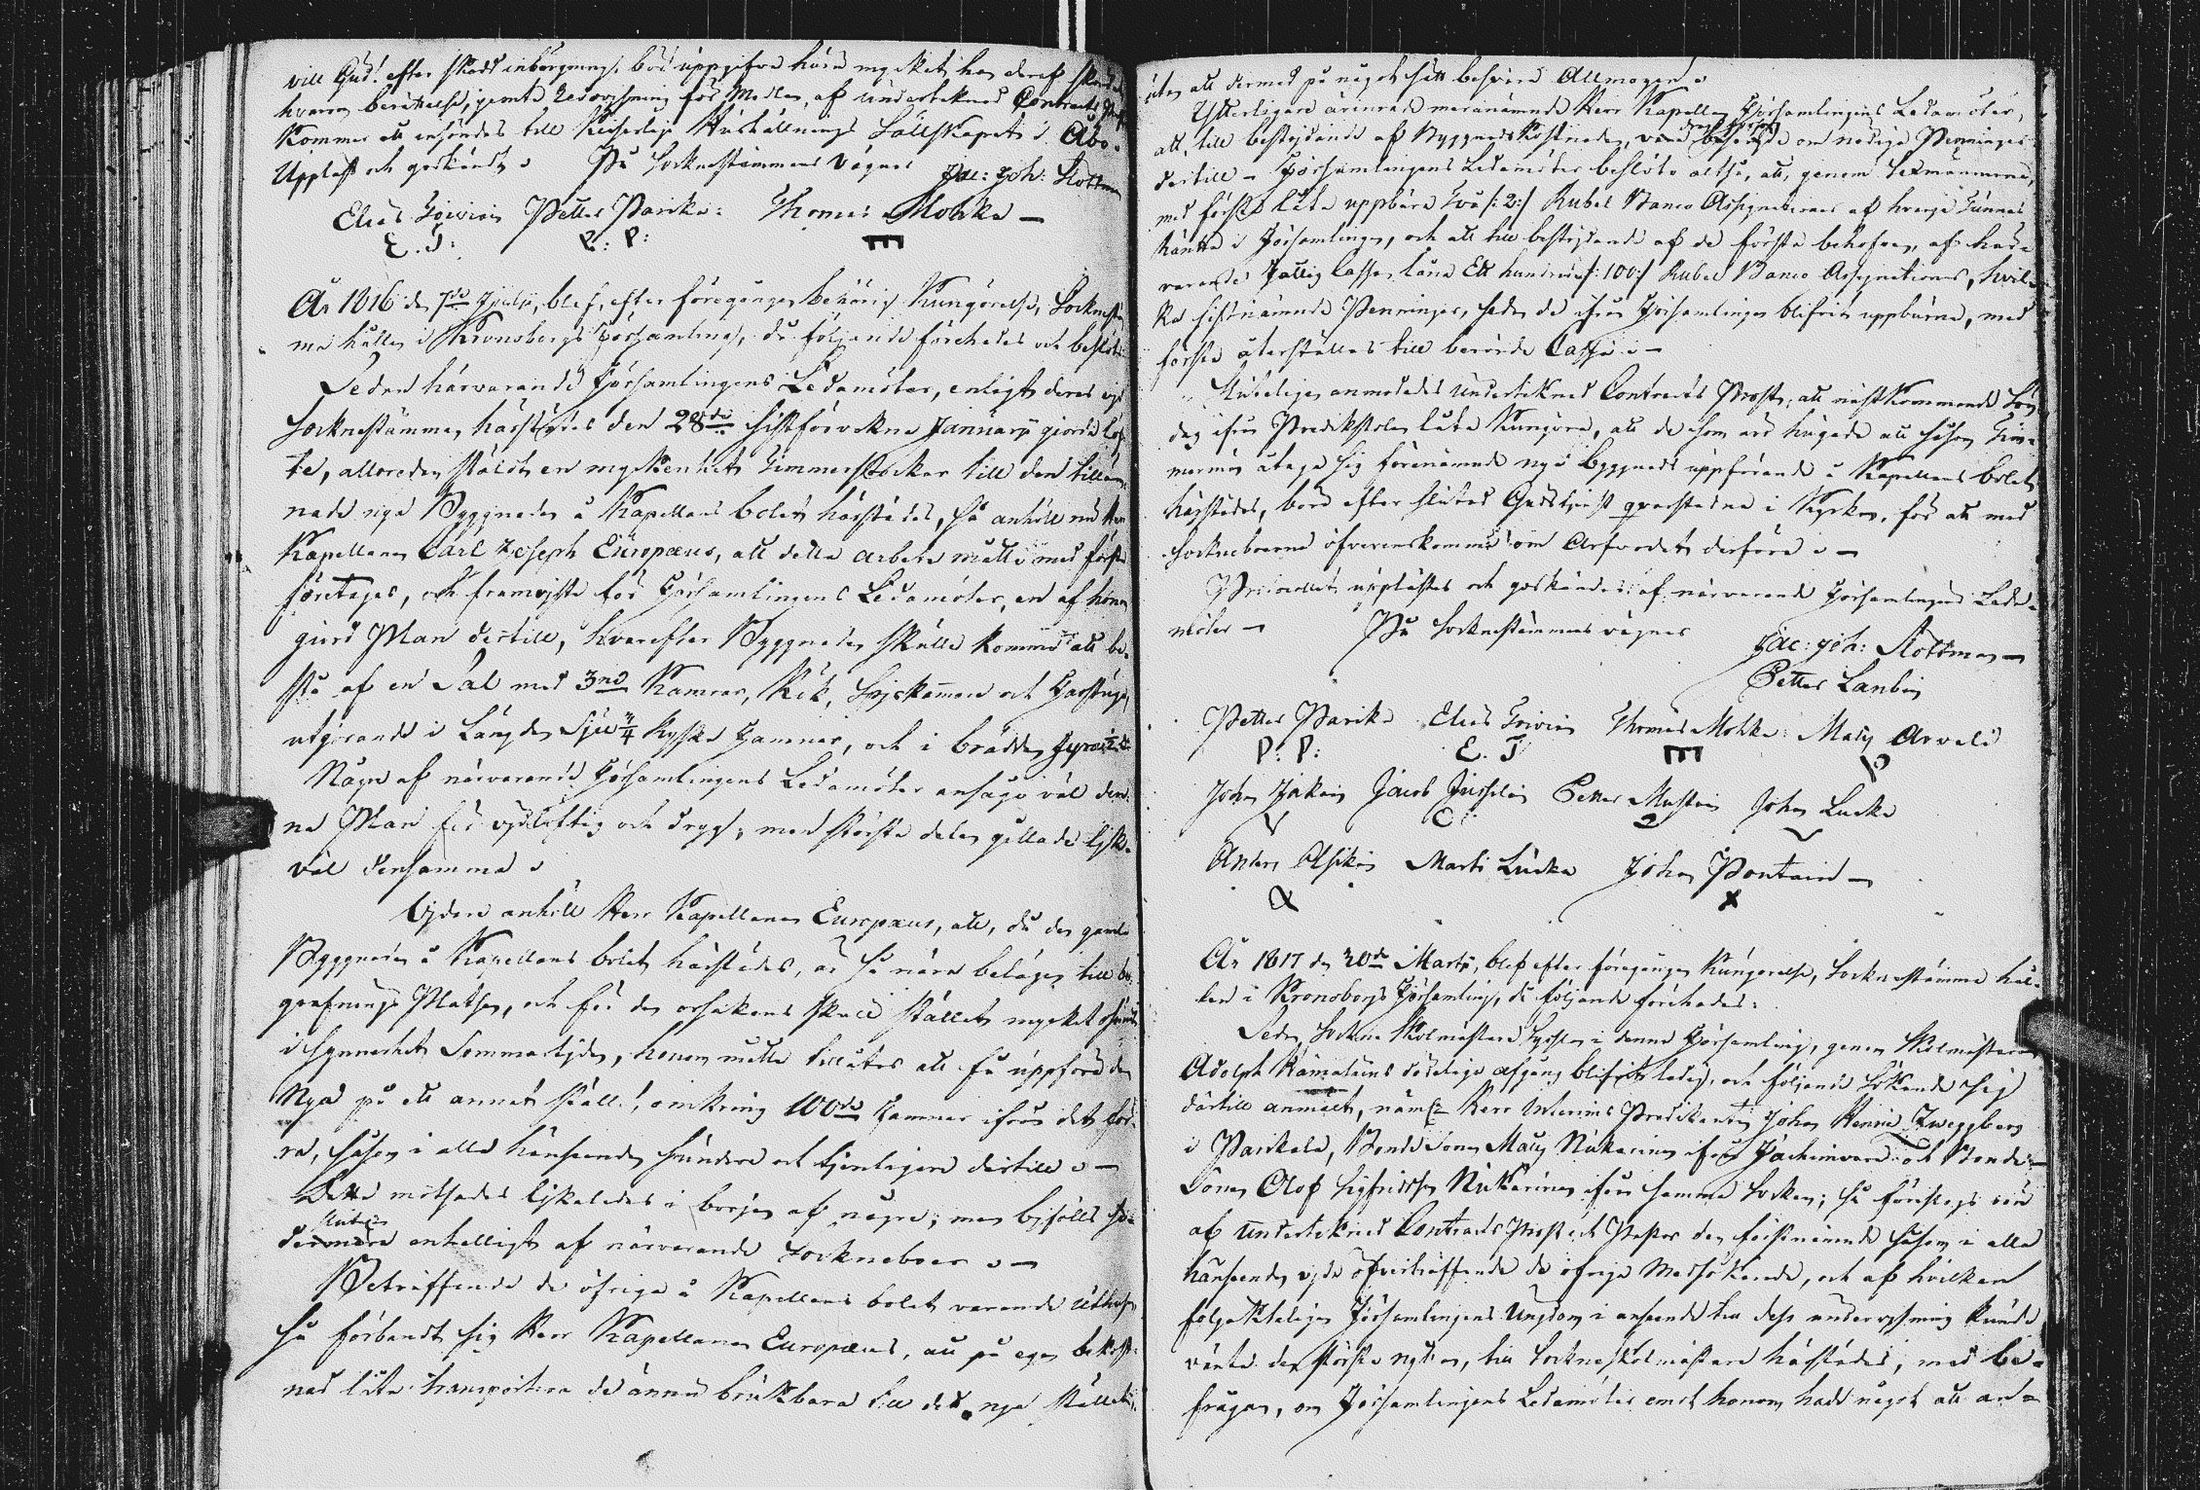 will Gud! efter skedd inbergning, bör uppgifva huru mycket han deraf skördat,
hvarom berättelse, jemte Redovisning för Medlen, af undertecknad Contracts Prost
kommer att insändas till Keiserliga Hushållnings Sällskapet i Åbo.
Uppläst och godkändt. På Socknestämmans vägnar Jac: Joh: Kottman
Elias Toivoin Petter Parika: Thomas Mohka —
E. T: P: P: m
År 1816 den 7de Julii, blef, efter föregången behörig Kungörelse, Sockneståm
ma hållen i Kronoborgs Församling, då följande förehades och beslöts:
Sedan härvarande Församlingens Ledamöter, enligt deras vid
Socknestämma, härstädes den 28de sistförvekne Januarii gjorde löf-
te, allaredan släpat en myckenhet Timmerstockar till den tilläm-
nade nya Byggnaden å Kapellans bolet härstädes, så anhöll nu Herr
Kapellanen Carl Joseph Europæus, att detta arbete måtte med första
företagas, och framviste för Församlingens Ledamöter, en af honom
gjord Plan dertill, hvarefter Byggnaden skulle komma att be-
stå af en Sal med 3ne Kamrar, Kök, Spiskammare och Farstuga,
utgörande i Längden Sju 3/4 Ryska Famnar, och i bredden fyra
Några af närvarande Församlingens Ledamöter ansågo väl den-
na Plan för vidlöftig och dryg, men största delen gillade lik-
väl densamma.
Vidare anhöll Herr Kapellanen Europæus, att, då den gamla
Byggnaden å Kapellans bolet härstädes, är så nära belägen till be-
grafnings Platsen, och för den orsakens skull stället mycket osundt
i synnerhet Sommartiden, honom måtte tillåtas att få uppföra den
Nya på ett annat ställe, omkring 100de Famnar ifrån det för-
ra, såsom i alla hänseenden sundare och tjenligare dertill. —
Detta motsades likaledes i början af några; men bifölls se-
dermera enhälligt af närvarande Sockneboer. —
Beträffande de öfriga å Kapellans bolet varande Uthus,
så förbandt sig Herr Kapellanen Europæus, att på egen bekost-
nad låta transportera de ännu brukbara till det nya stället,
utan att dermed på något sätt besvära Allmogen.
Ytterligare ärinrade merenämnde Herr Kapellan Församlingens Ledamöter,
att, till bestridande af Byggnadskostnaden, vara om nödiga Penningar
dertill. — Församlingens Ledamöter beslöto altså, att, genom Sexmännerna,
med första låta uppbära Två /: 2:/ Rubel Banco Assignationer af hvarje
i Församlingen, och att till bestridande af de första behofven, af här-
varande Fattig Cassa, låna Ett hundrade /: 100:/ Rubel Banco Assignationer, hvil-
ka sistnämnde Penningar, sedan de ifrån Församlingen blifvit uppburne, med
första återställas till berörde Cassa. —
Slutligen anmodades undertecknad Contracts Prost, att nästkommande Sön-
dag ifrån Predikstolen låta Kungöra, att de som äro hugade att såsom Tim-
mermän åtaga sig förenämnde nya byggnads uppförande å Kapellans bolet
härstädes, böra efter slutad Gudstjenst qvarstadna i Kyrkan, för att med
Sockneboerna öfverenskomma om Arfvodet derföre. —
Protocollet uppläst och godkändes af närvarande Församlingens Leda-
möter — På Socknestämmans vägnar
Jac: Joh: Kottman —
Petter Lankin
Petter Parika Elias Toivoin Thomas Mohka: Mats Arvela
P: P: E. T m
Johan Jakoin Jacob Petter Mustoin Johan Lucka
Anders Matti Lucka Johan Pontain —
År 1817 den 30de Martii, blef efter föregången Kungörelse, Socknestämma hål-
len i Kronoborgs Församling, då följande förehades:
Sedan Sockne Skolmästare Sysslan i denna Församling, genom Skolmästaren
Adolph Rämäläins dödeliga afgång blifvit ledig, och följande Sökande sig
dertill anmält, näml: Herr Interims Predikanten Johan Henric Zweygberg
i Parikala, Bonde Sonen Mats Nukarinen ifrån Jackimvara och Bonde-
Sonen Olof Sigfridsson Nukarinen ifrån samma Socken; så föreslogs nu
af undertecknad Contracts Prost och Pastor den förstnämnde såsom i alla
hänseenden vida öfverträffande de öfriga Medsökande, och af hvilken
följakteligen Församlingens Ungdom i anseende till dess undervisning kunde
vänta den största nyttan, till Sockneskolmästare härstädes, med be-
frågan, om Församlingens Ledamöter emot honom hade något att an-